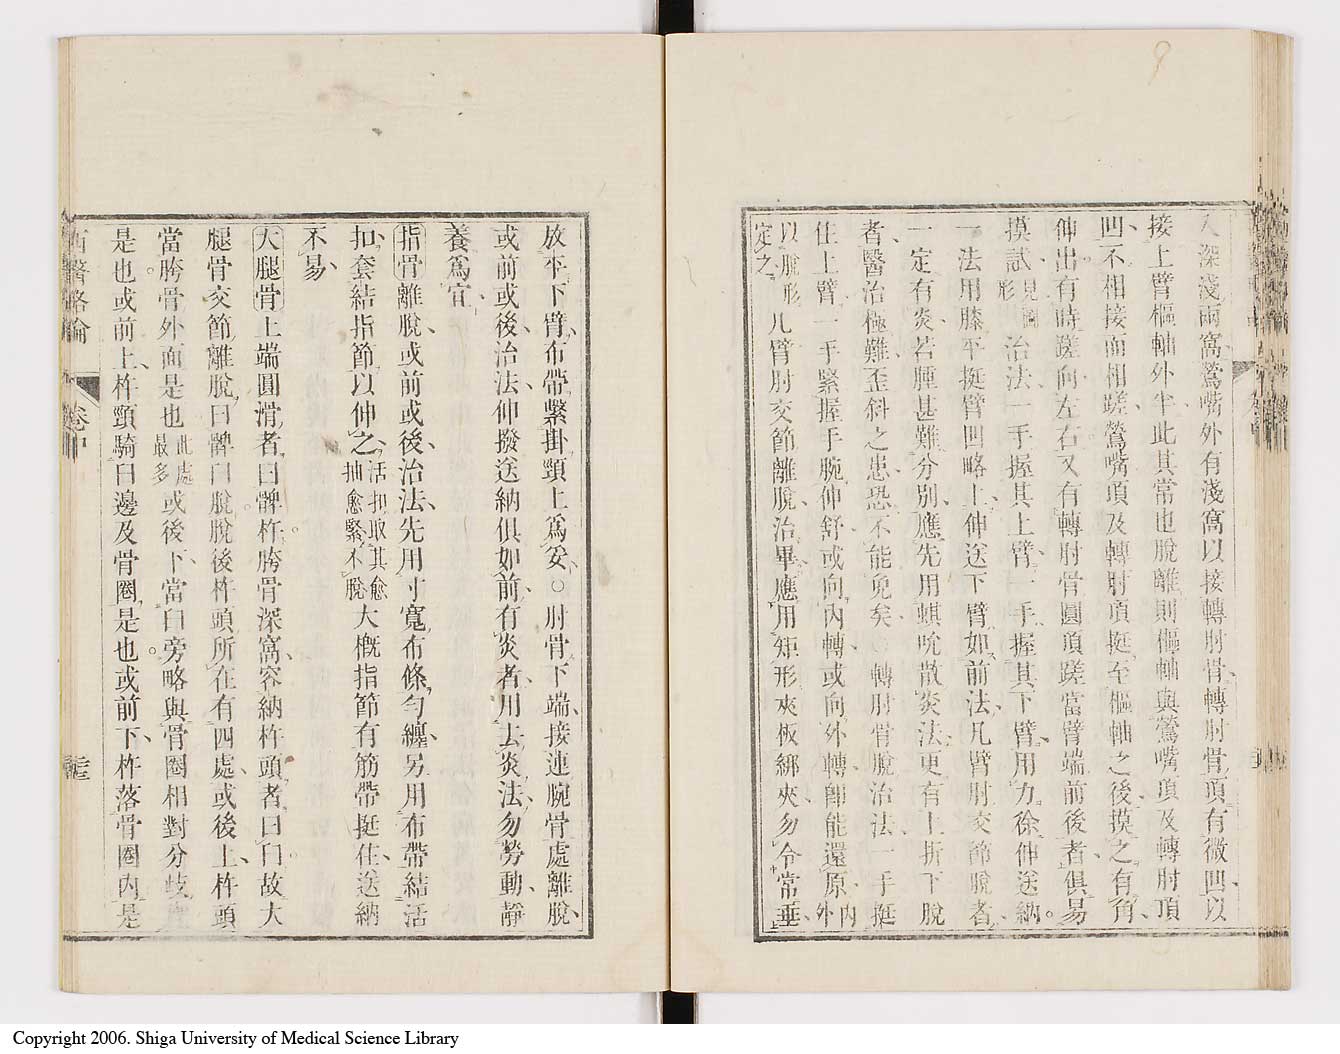 入深淺兩窩鶯嘴外有淺窩以接轉肘骨轉肘骨頂有微凹以
接上臂樞軸外半此其常也脫離則樞軸與鶯嘴頂及轉肘頂
凹不相接而相蹉鶯嘴頂及轉肘頂挺至樞軸之後摸之有角
伸出有時蹉向左右又有轉肘骨圓頂蹉當臂端前後者俱易
摸試見欄形治法一手握其上臂一手握其下臂用力徐伸送納
一法用膝平挺臂凹略上伸送下臂如前法凡臂肘交節脫者
一定有炎若腫甚難分別應先用蜞吮散炎法更有上折下脫
者醫治極難歪斜之患恐不能免矣○轉肘骨脫治法一手挺
住上臂一手緊握手腕伸舒或向內轉或向外轉卽能還原內外
以脫形定之凡臂肘交節離脫治畢應用矩形夾板綁夾勿令常垂
放平下臂布帶繫掛頸上爲妥○肘骨下端接連腕骨處離脫
或前或後治法伸撥送納俱如前有炎者用去炎法勿勞動靜
養爲宜
指骨離脫或前或後治法先用寸寬布條勻纏另用布帶結活
扣套結指節以伸之活扣取其愈抽愈緊不脫大槪指節有筋帶挺住送納
不易
大腿骨上端圓滑者曰髀杵胯骨深窩容納杵頭者曰臼故大
腿骨交節離脫曰髀臼脫脫後杵頭所在有四處或後上杵頭
當胯骨外面是也此處最多或後下當臼旁略與骨圈相對分歧
是也或前上杵頸騎臼邊及骨圈是也或前下杵落骨圈內是
西醫略論
卷中
三三
9
Copyright 2006. Shiga University of Medical Science Library